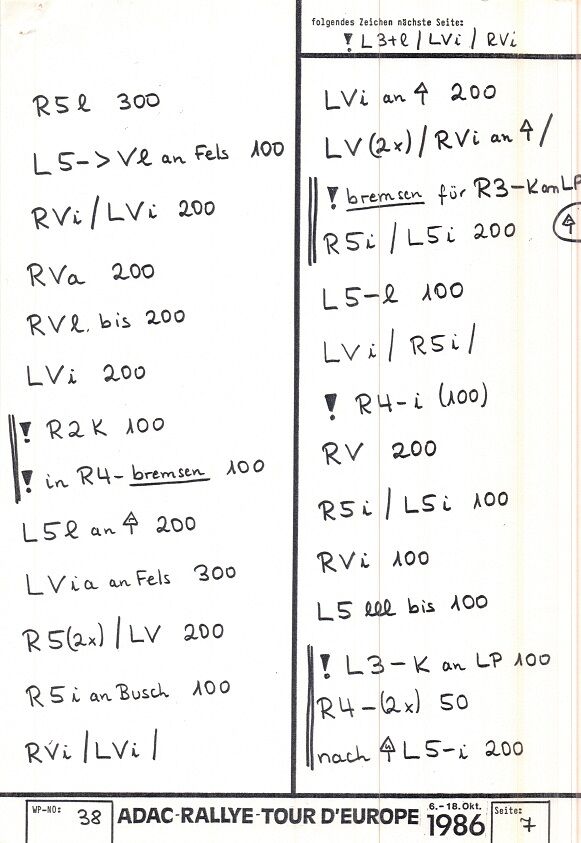 folgendes Zeichen nächste Seite:
! L3+l / LVi / RVi
R5l 300
L5-> Vl an Fels 100
RVi / LVi 200
RVa 200
RVl. bis 200
LVi 200
! R2K 100
! in R4- bremsen 100
L5l an ↑ 200
LVia an Fels 300
R5(2x) / LV 200
R5i an Busch 100
RVi / LVi /
LVi an ↑ 200
LV(2x) / RVi an ↑ /
! bremsen für R3-K an LP
R5i / L5i 200 ↑
L5-l 100
LVi / R5i /
! R4-i (100)
RV 200
R5i / L5i 100
RVi 100
L5 lll bis 100
! L3-K an LP 100
R4-(2x) 50
nach ↑ L5-i 200
WP-NO: 38
ADAC-RALLYE-TOUR D'EUROPE
6.-18. Okt.
1986
Seite: 7